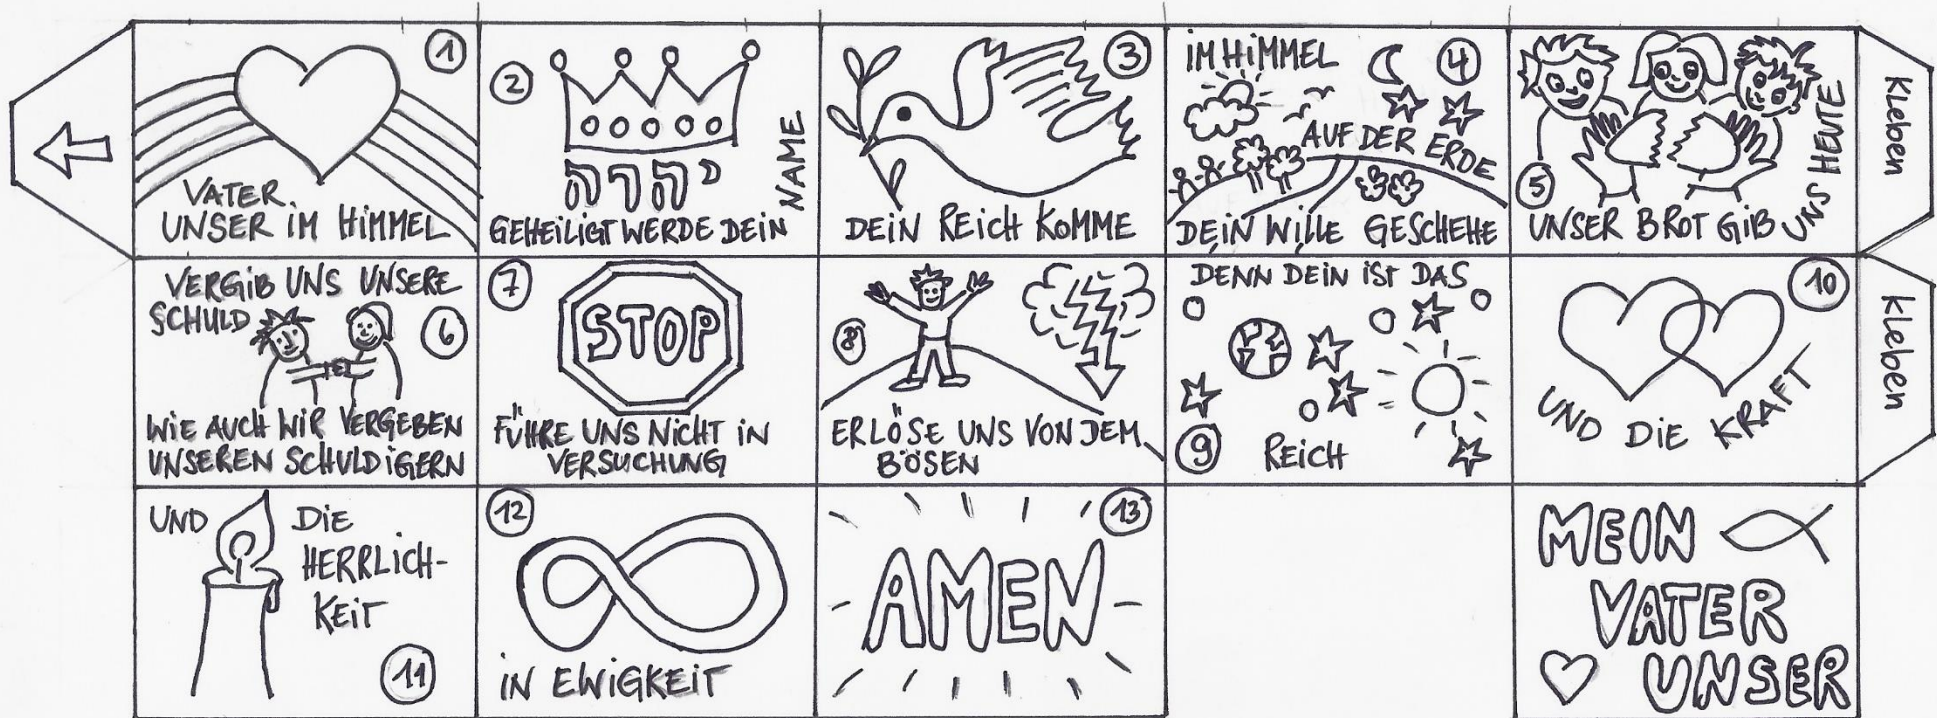 1
VATER
UNSER IM HIMMEL
2
יהוה
GEHEILIGT WERDE DEIN NAME
3
DEIN REICH KOMME
4
IM HIMMEL
AUF DER ERDE
DEIN WILLE GESCHEHE
5
UNSER BROT GIB UNS HEUTE
Kleben
VERGIB UNS UNSERE
SCHULD
6
WIE AUCH WIR VERGEBEN
UNSEREN SCHULDIGERN
7
STOP
FÜHRE UNS NICHT IN
VERSUCHUNG
8
ERLÖSE UNS VON DEM
BÖSEN
DENN DEIN IST DAS
9
REICH
10
UND DIE KRAFT
Kleben
UND DIE
HERRLICH-
KEIT
11
12
IN EWIGKEIT
13
AMEN
MEIN
VATER
UNSER